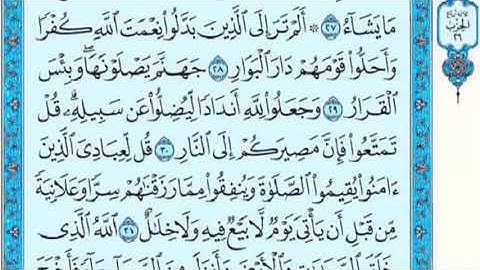 مَا يَشَآءُ ٢٧ ۞ أَلَمْ تَرَ إِلَى ٱلَّذِينَ بَدَّلُوا۟ نِعْمَتَ ٱللَّهِ كُفْرًا
وَأَحَلُّوا۟ قَوْمَهُمْ دَارَ ٱلْبَوَارِ ٢٨ جَهَنَّمَ يَصْلَوْنَهَا ۖ وَبِئْسَ
ٱلْقَرَارُ ٢٩ وَجَعَلُوا۟ لِلَّهِ أَندَادًا لِّيُضِلُّوا۟ عَن سَبِيلِهِۦ ۗ قُلْ
تَمَتَّعُوا۟ فَإِنَّ مَصِيرَكُمْ إِلَى ٱلنَّارِ ٣٠ قُل لِّعِبَادِىَ ٱلَّذِينَ
ءَامَنُوا۟ يُقِيمُوا۟ ٱلصَّلَوٰةَ وَيُنفِقُوا۟ مِمَّا رَزَقْنَٰهُمْ سِرًّا وَعَلَانِيَةً
مِّن قَبْلِ أَن يَأْتِىَ يَوْمٌ لَّا بَيْعٌ فِيهِ وَلَا خِلَٰلٌ ٣١ ٱللَّهُ ٱلَّذِى
خَلَقَ ٱلسَّمَٰوَٰتِ وَٱلْأَرْضَ وَأَنزَلَ مِنَ ٱلسَّمَآءِ مَآءً فَأَخْرَجَ
ٱلْحِزْب
٢٦